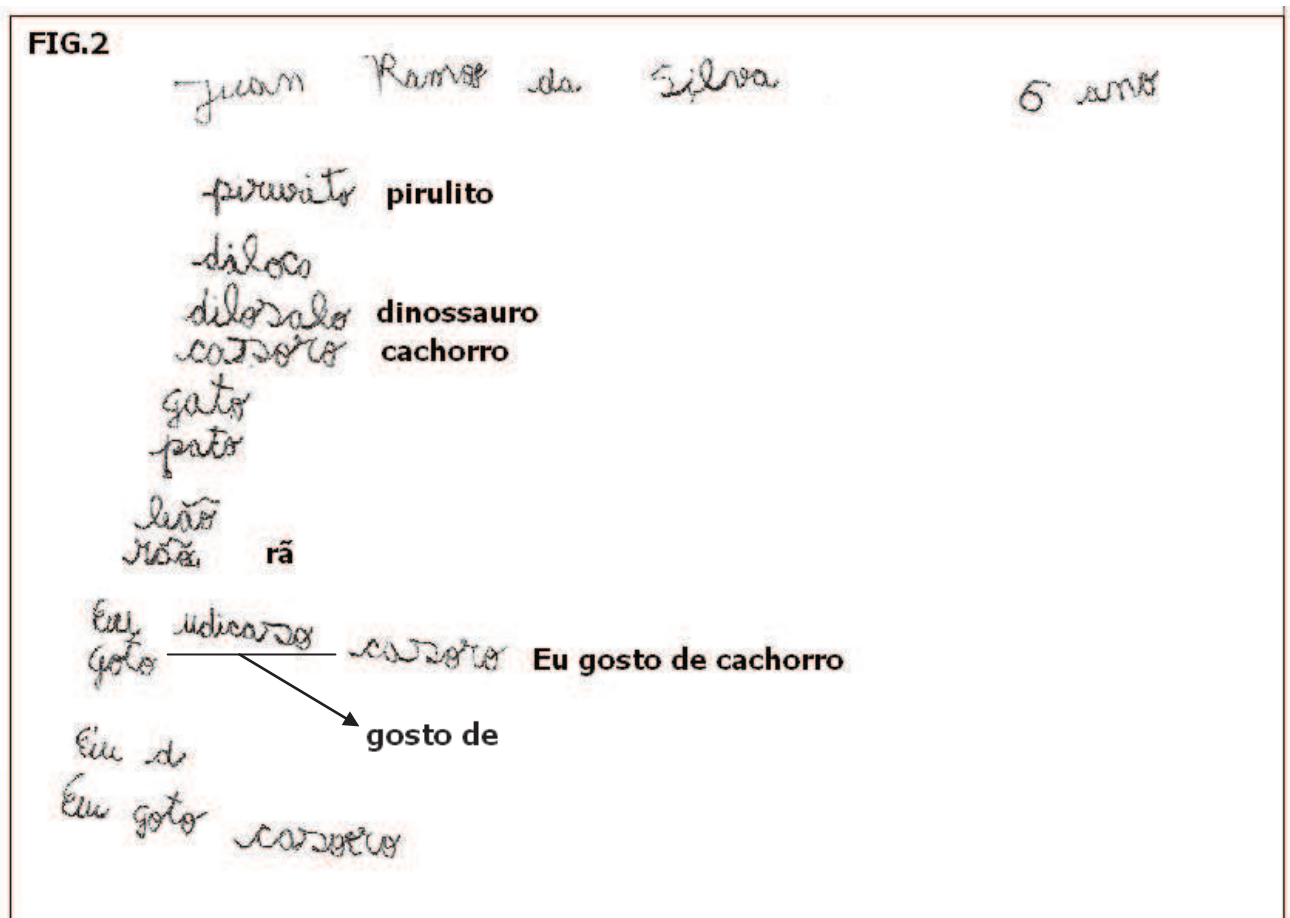 FIG.2
Juan Ramos da Silva 6 ano
piruvito pirulito
diloco
dilosalo dinossauro
casoro cachorro
gato
pato
leão
rãã rã
Eu udicaso
goto casoro Eu gosto de cachorro
gosto de
Eu d
Eu goto casoro